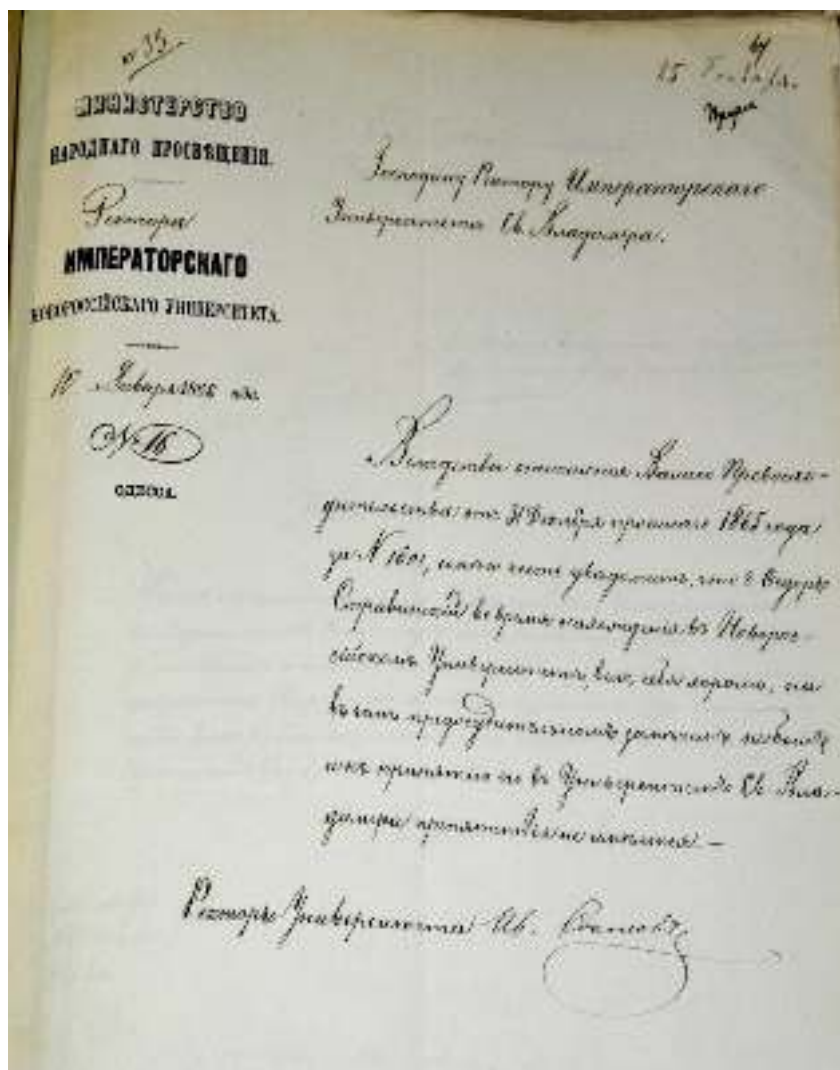 № 35.
64
15 Января.
МИНИСТЕРСТВО
НАРОДНАГО ПРОСВѢЩЕНІЯ.
Ректора
ИМПЕРАТОРСКАГО
НОВОРОССІЙСКАГО УНИВЕРСИТЕТА.
10 Января 1866 года
№ 16
ОДЕССА.
Господину Ректору Императорскаго
Университета Св. Владиміра.
Вслѣдствіе отношенія Вашего Превосхо-
дительства отъ 31 Декабря прошлаго 1865 года
за № 1601, имѣю честь увѣдомить, что Ѳедоръ
Стравинскій во время нахожденія въ Новорос-
сійскомъ Университетѣ, велъ себя хорошо, ни
въ чемъ предосудительномъ замѣченъ
принятію его въ Университетъ Св. Вла-
диміра препятствія не имѣется —
Ректоръ Университета Ив. Соколовъ